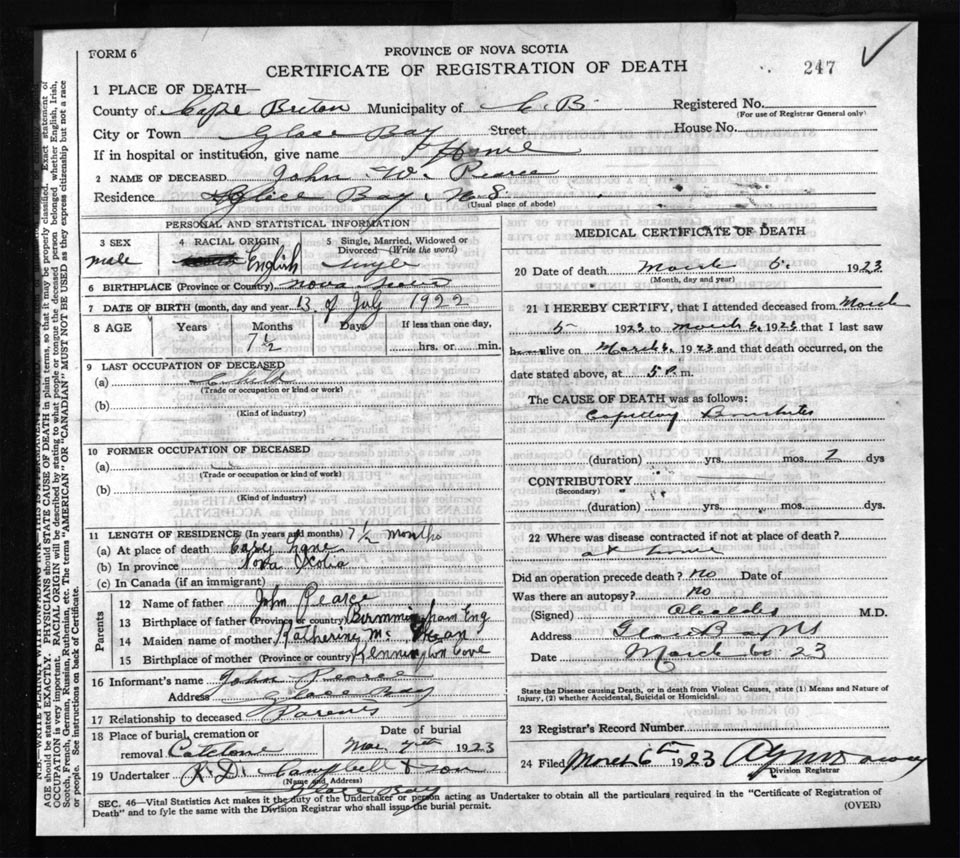 FORM 6
PROVINCE OF NOVA SCOTIA
CERTIFICATE OF REGISTRATION OF DEATH
247
1 PLACE OF DEATH—
County of Cape Breton Municipality of C. B. Registered No.
(For use of Registrar General only)
City or Town Glace Bay Street House No.
If in hospital or institution, give name Home
2 NAME OF DECEASED John W. Pearce
Residence Glace Bay N S.
(Usual place of abode)
PERSONAL AND STATISTICAL INFORMATION
3 SEX 4 RACIAL ORIGIN 5 Single, Married, Widowed or Divorced (Write the word)
male English single
6 BIRTHPLACE (Province or Country) Nova Scotia
7 DATE OF BIRTH (month, day and year) 13 of July 1922
8 AGE Years Months Days If less than one day,
7 1/2 hrs. or min.
9 LAST OCCUPATION OF DECEASED
(a) Child
(Trade or occupation or kind or work)
(b)
(Kind of industry)
10 FORMER OCCUPATION OF DECEASED
(a)
(Trade or occupation or kind of work)
(b)
(Kind of industry)
11 LENGTH OF RESIDENCE (In years and months) 7 1/2 months
(a) At place of death Lane
(b) In province Nova Scotia
(c) In Canada (if an immigrant)
Parents
12 Name of father John Pearce
13 Birthplace of father (Province or country) Birmmingham Eng
14 Maiden name of mother Katherine Mc
15 Birthplace of mother (Province or country) Kennington Cove
16 Informant's name John Pearce
Address Glace Bay
17 Relationship to deceased Parents
18 Place of burial, cremation or Date of burial
removal Mar 7th 1923
19 Undertaker R. D. Campbell & Son
(Name and Address)
Glace Bay
MEDICAL CERTIFICATE OF DEATH
20 Date of death March 6. 1923
(Month, day and year)
21 I HEREBY CERTIFY, that I attended deceased from March
5 1923 to March 6, 1923 that I last saw
alive on March 6, 1923 and that death occurred, on the
date stated above, at 5 P. m.
The CAUSE OF DEATH was as follows:
Capillary Bronchitis
(duration) yrs. mos. 2 dys
CONTRIBUTORY
(Secondary)
(duration) yrs. mos. dys
22 Where was disease contracted if not at place of death?
at home
Did an operation precede death? no Date of
Was there an autopsy? no
(Signed) M.D.
Address Glace Bay NS
Date March 6o 23
State the Disease causing Death, or in death from Violent Causes, state (1) Means and Nature of
Injury, (2) whether Accidental, Suicidal or Homicidal.
23 Registrar's Record Number
24 Filed March 6th 1923
Division Registrar
SEC. 46—Vital Statistics Act makes it the duty of the Undertaker or person acting as Undertaker to obtain all the particulars required in the "Certificate of Registration of
Death" and to fyle the same with the Division Registrar who shall issue the burial permit. (OVER)